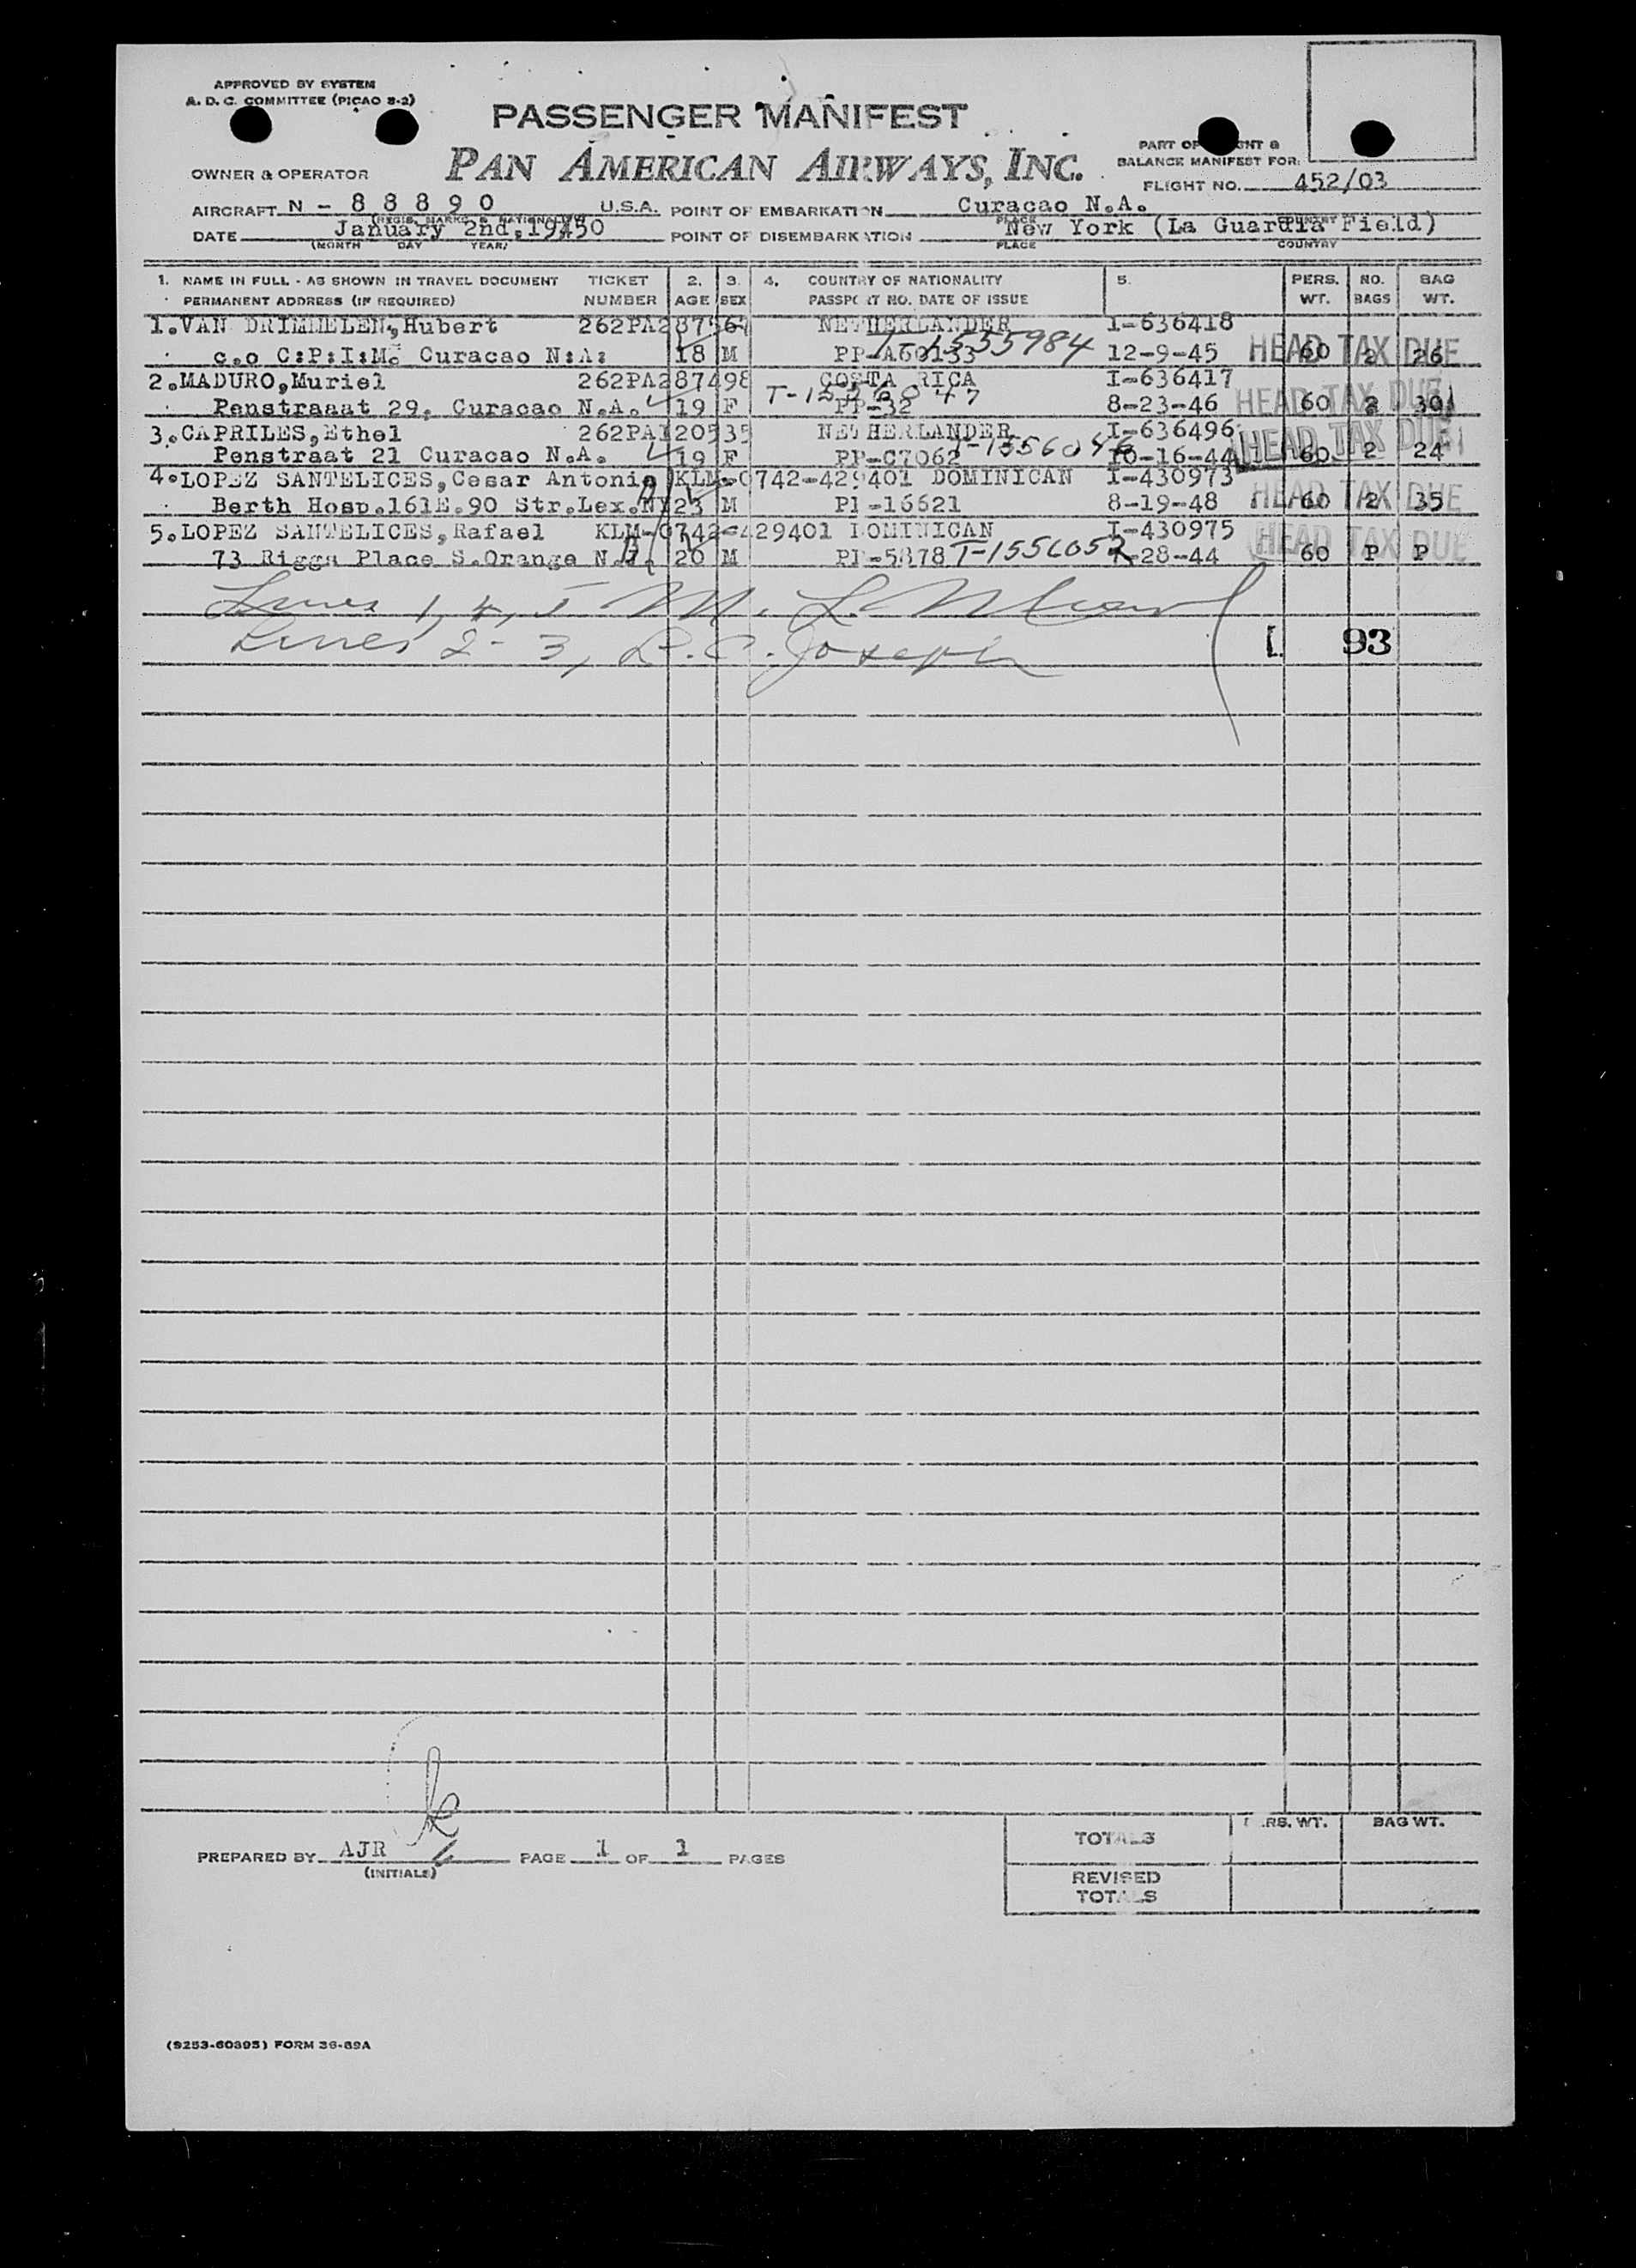 APPROVED BY SYSTEM
A. D. C. COMMITTEE (PICAO 8-2)
PASSENGER MANIFEST
PAN AMERICAN AIRWAYS, INC.
PART OF
BALANCE MANIFEST FOR:
OWNER & OPERATOR
FLIGHT NO. 452/03
AIRCRAFT N - 8 8 8 9 0 U.S.A. POINT OF EMBARKATION Curacao N.A.
(REGIS. MARKS & NATIONALITY) PLACE COUNTRY
DATE January 2nd,1950 POINT OF DISEMBARKATION New York (La Guardia Field)
(MONTH DAY YEAR) PLACE COUNTRY
1. NAME IN FULL - AS SHOWN IN TRAVEL DOCUMENT TICKET 2. 3. 4. COUNTRY OF NATIONALITY 5. PERS. NO. BAG
PERMANENT ADDRESS (IF REQUIRED) NUMBER AGE SEX PASSPORT NO. DATE OF ISSUE WT. BAGS WT.
1.VAN DRIMMELEN,Hubert 262PA287567 NETHERLANDER I-636418
c.o C:P:I:M: Curacao N:A: 18 M PP-A60133 T-1555984 12-9-45 60 2 26 HEAD TAX DUE
2.MADURO,Muriel 262PA287498 COSTA RICA I-636417
Penstraaat 29. Curacao N.A. 19 F PP-32 8-23-46 60 2 30 HEAD TAX DUE
3.CAPRILES,Ethel 262PA120535 NETHERLANDER I-636496
Penstraat 21 Curacao N.A. 19 F PP-C7062 T-1556046 10-16-44 60 2 24 HEAD TAX DUE
4.LOPEZ SANTELICES,Cesar Antonio KLM-0742-429401 DOMINICAN I-430973
Berth Hosp.161E.90 Str.Lex.NY 23 M PP-16621 8-19-48 60 2 35 HEAD TAX DUE
5.LOPEZ SANTELICES,Rafael KLM-0742-429401 DOMINICAN I-430975
73 Riggs Place S.Orange N.J. 20 M PP-5878 T-1556052 -28-44 60 P P HEAD TAX DUE
Lines 1, 4, 5 M. L.
Lines 2-3, L. C. Joseph
93
PREPARED BY AJR PAGE 1 OF 1 PAGES
(INITIALS)
TOTALS PERS. WT. BAG WT.
REVISED
TOTALS
(9253-60395) FORM 36-89A